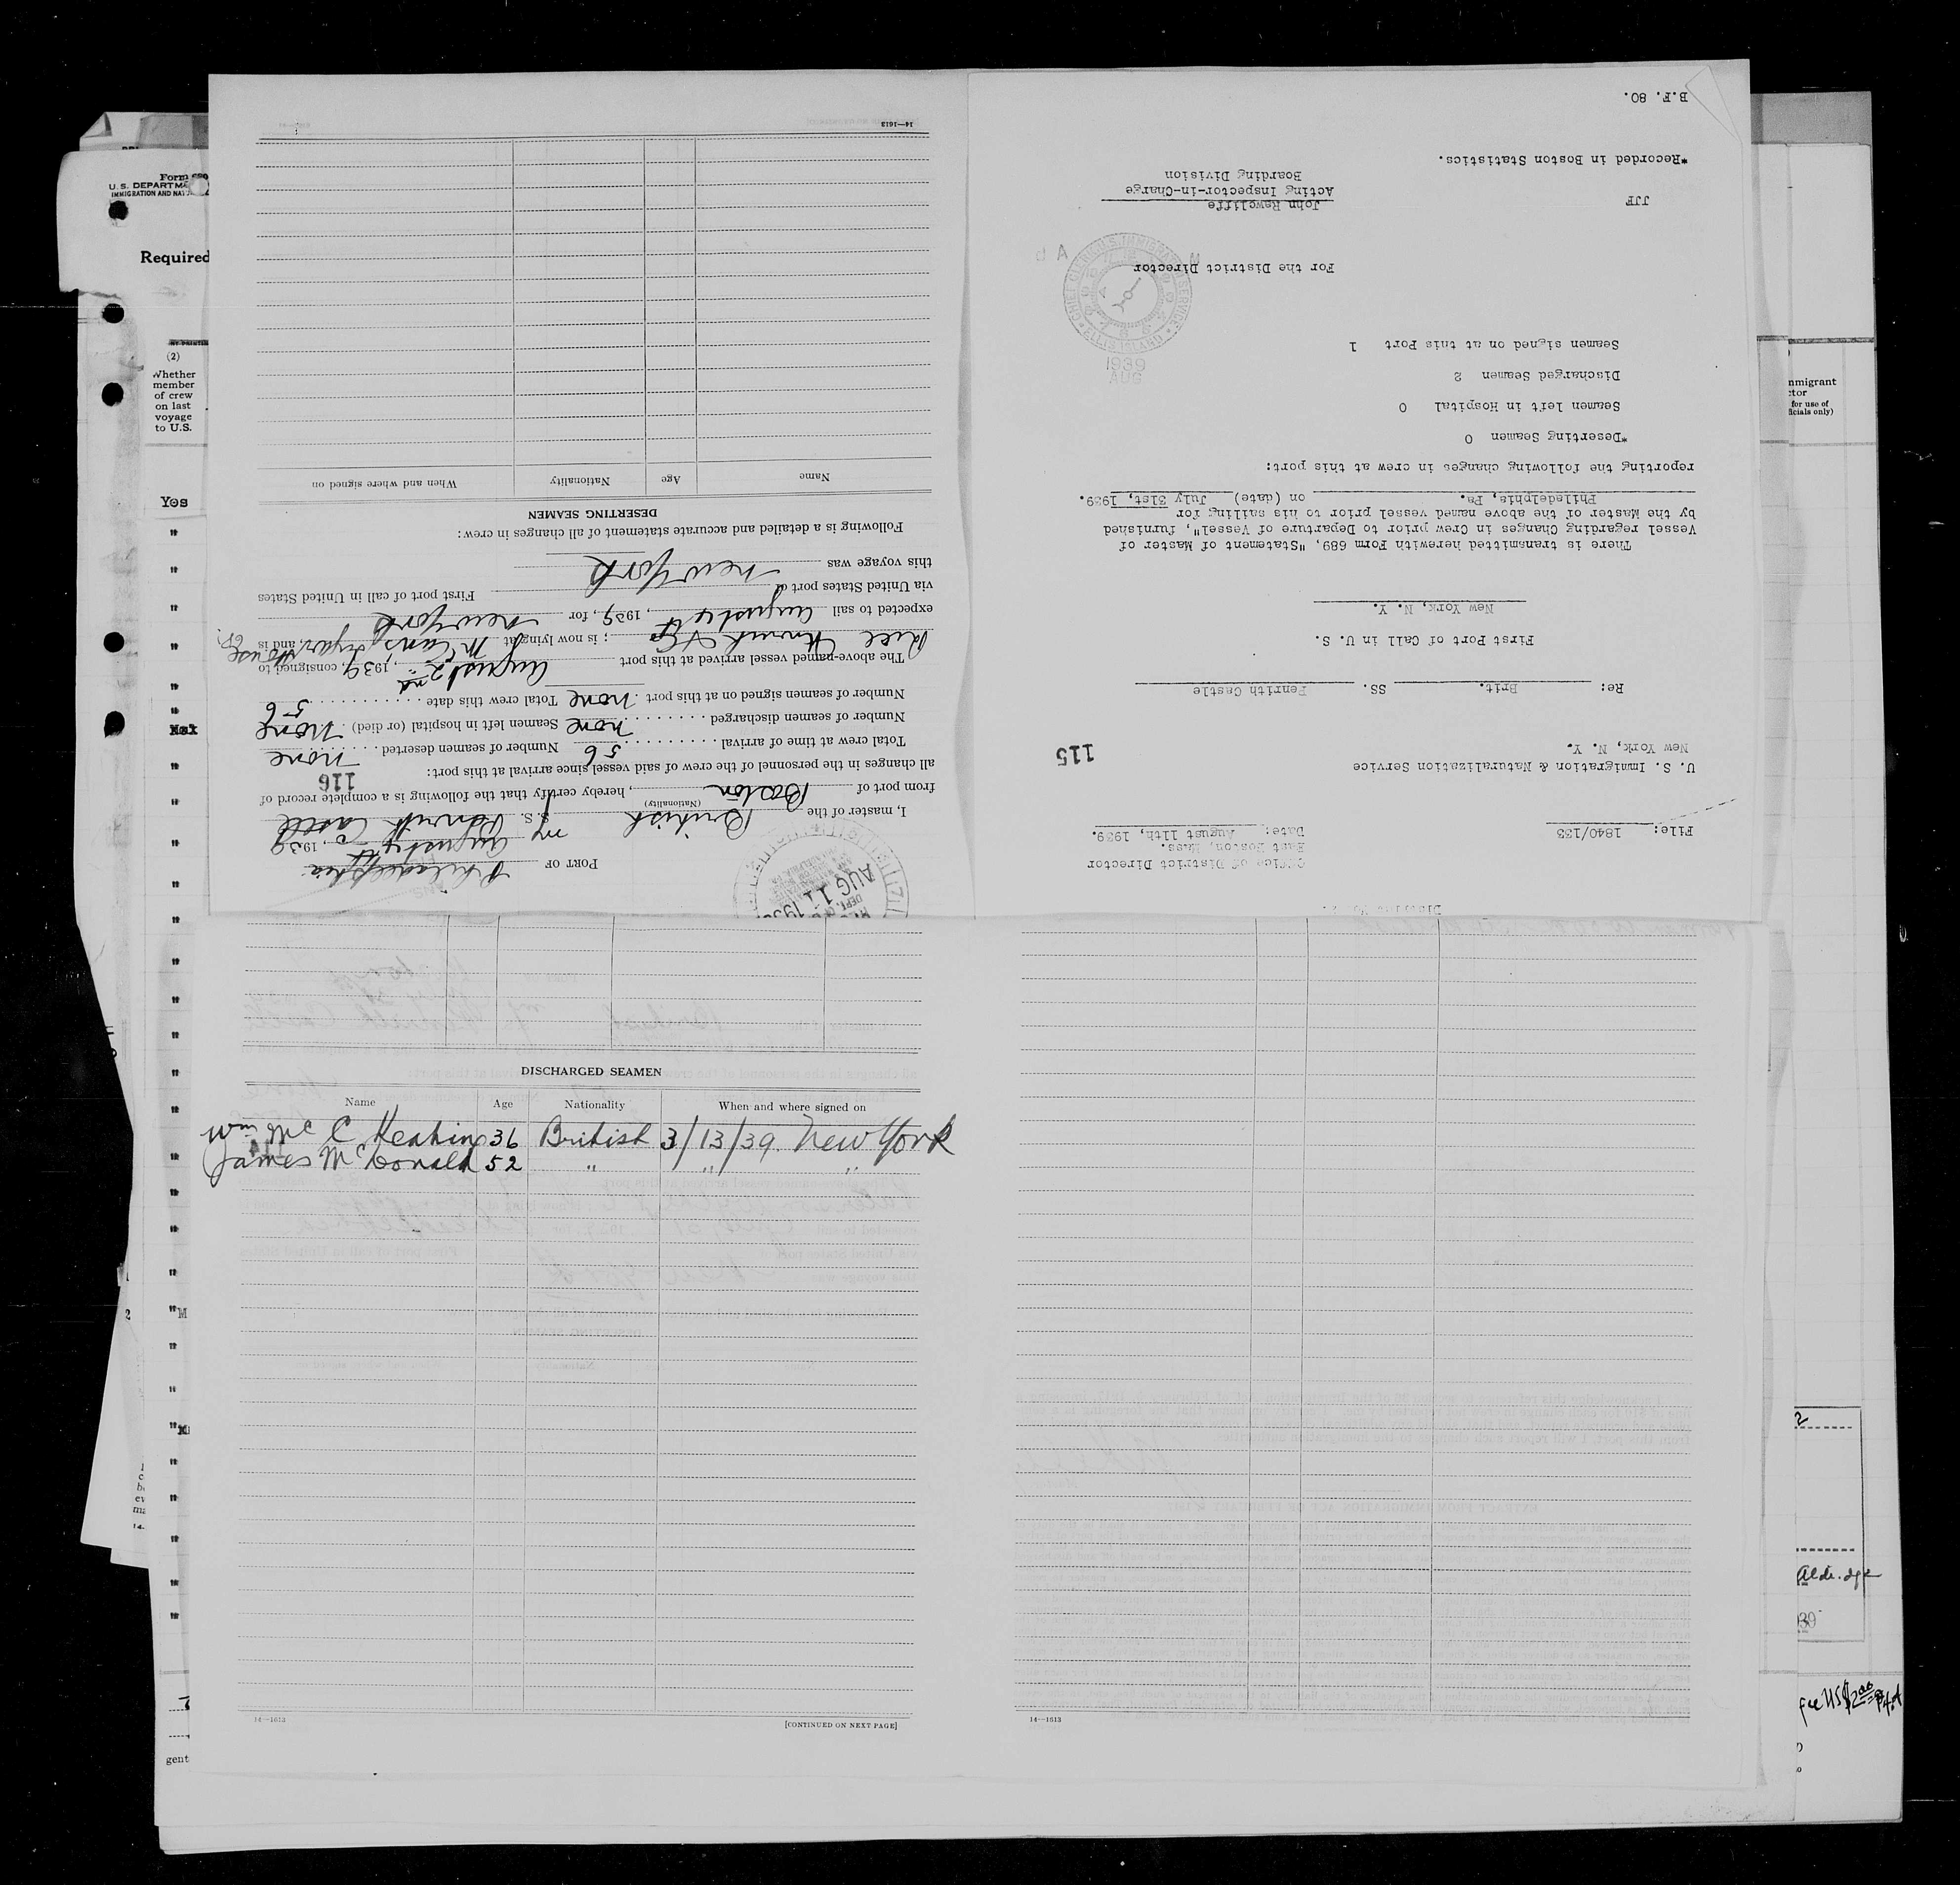 District No. 2.
Office of District Director
East Boston, Mass.
File: 1840/133 Date: August 11th, 1939.
U. S. Immigration & Naturalization Service
New York, N. Y.
115
Re: Brit. SS. Penrith Castle
First Port of Call in U. S.
New York, N. Y.
There is transmitted herewith Form 689, "Statement of Master of
Vessel regarding Changes in Crew prior to Departure of Vessel", furnished
by the Master of the above named vessel prior to his sailing for
Philadelphia, Pa. on (date) July 31st, 1939.
reporting the following changes in crew at this port:
*Deserting Seamen 0
Seamen left in Hospital 0
Discharged Seamen 2
Seamen signed on at this Port 1
For the District Director
CHIEF CLERK U.S. IMMIGRATION SERVICE
ELLIS ISLAND
1939
AUG
John Rawcliffe
Acting Inspector-in-Charge
Boarding Division
JJF
*Recorded in Boston Statistics.
B.F. 80.
AUG 11 1939
PORT OF Philadelphia
August 4th, 1939
I, master of the British M/V S.S. Penrith Castle
(Nationality)
from port of Boston, hereby certify that the following is a complete record of
116
all changes in the personnel of the crew of said vessel since arrival at this port:
Total crew at time of arrival 56 Number of seamen deserted none
Number of seamen discharged none Seamen left in hospital (or died) None
Number of seamen signed on at this port none Total crew this date 56
The above-named vessel arrived at this port August 2nd, 1939, consigned to
; is now lying at McCans Sugar House, and is
expected to sail August 4th, 1939, for New York
via United States port of First port of call in United States
this voyage was New York
Following is a detailed and accurate statement of all changes in crew:
DESERTING SEAMEN
Name Age Nationality When and where signed on
14—1613
DISCHARGED SEAMEN
Name Age Nationality When and where signed on
Wm Mc C Keating 36 British 3/13/39. New York
James McDonald 52 " " "
14—1613 [CONTINUED ON NEXT PAGE]
14—1613
Form 689
U. S. DEPARTME
IMMIGRATION AND NAT
Required
(2)
Whether
member
of crew
on last
voyage
to U.S.
Yes
gent
mmigrant
ctor
for use of
ficials only)
2